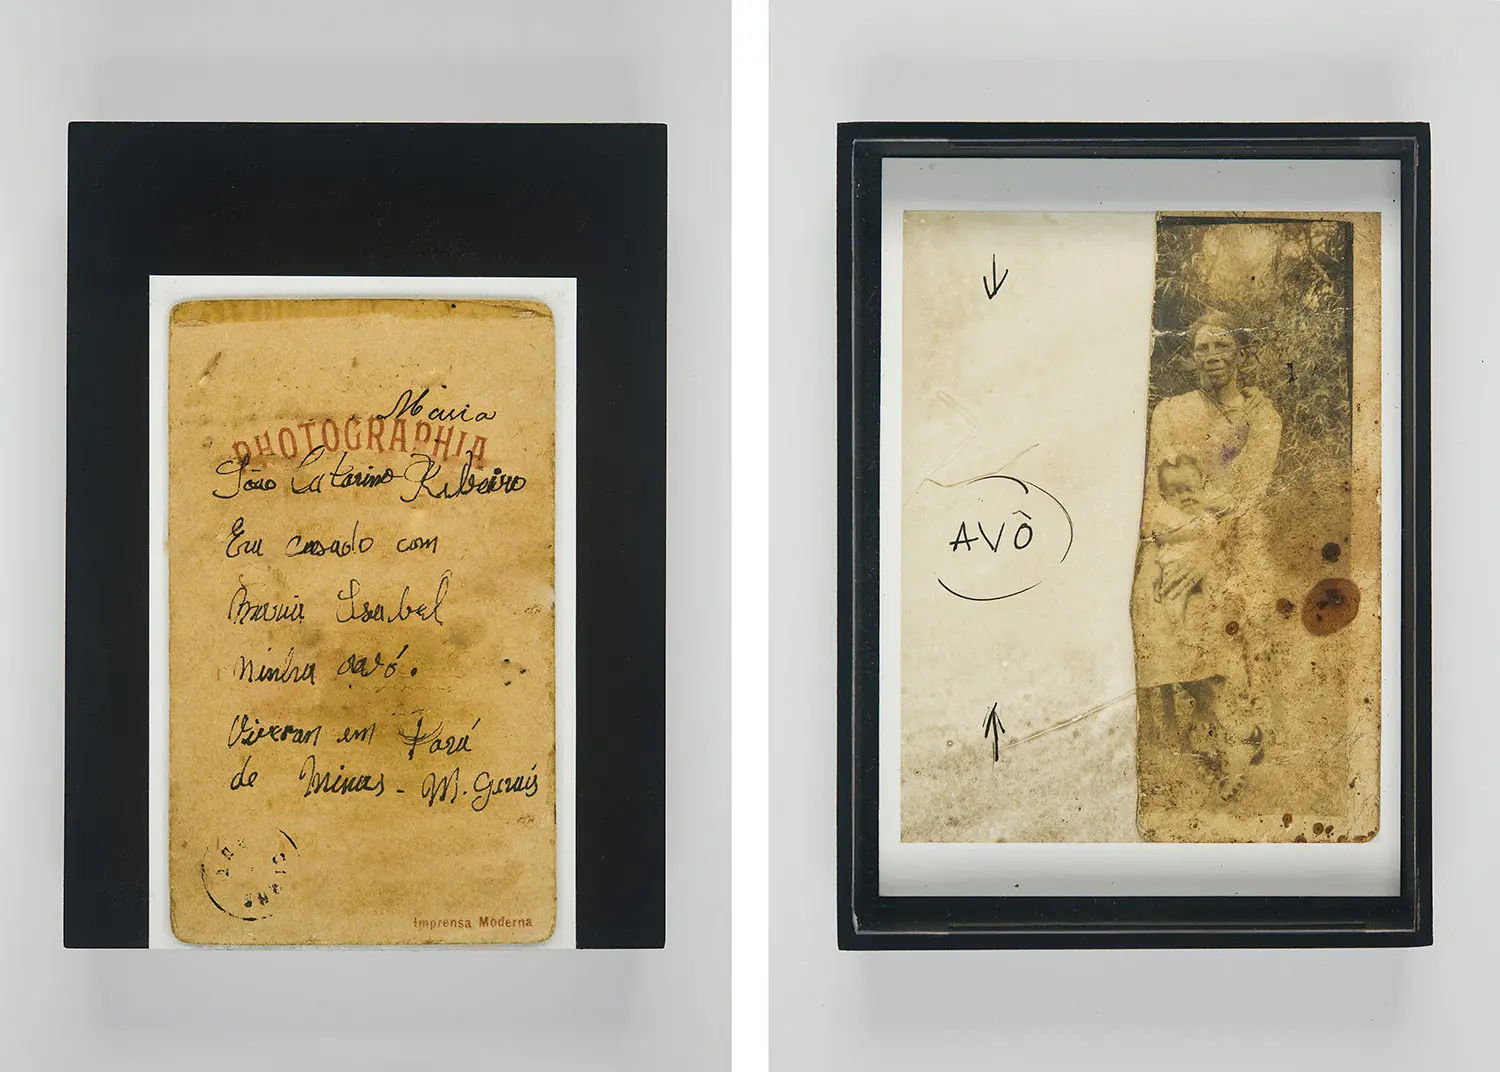 Maria
PHOTOGRAPHIA
João Catarino Ribeiro
Era casado com
Maria Isabel
Minha avó.
Viveram em Pará
de Minas - M. Gerais
Imprensa Moderna
AVÔ